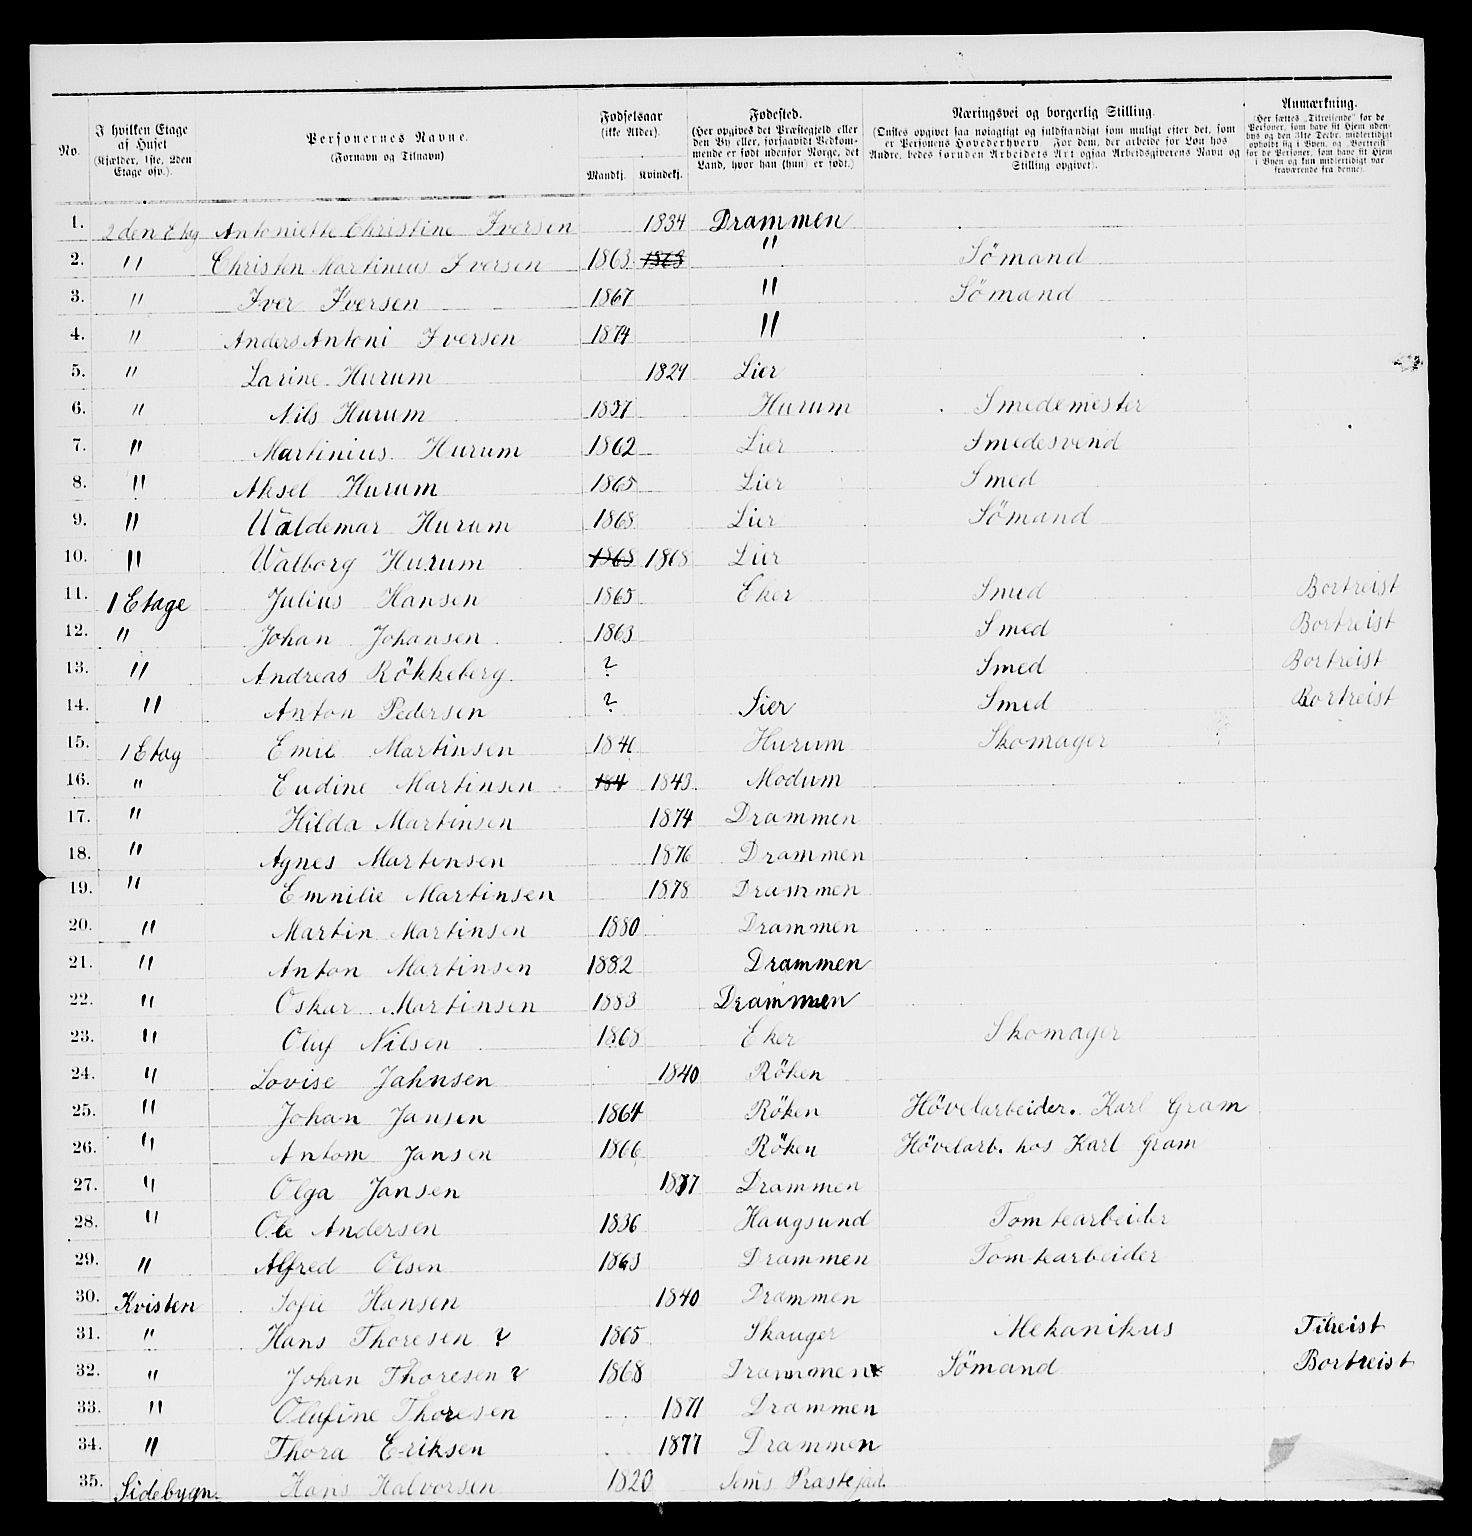 No. | I hvilken Etage af Huset (Kjælder, 1ste, 2den Etage osv.). | Personernes Navne. (Fornavn og Tilnavn) | Fødselsaar (ikke Alder). Mandkj. | Kvindekj. | Fødested. (Her opgives det Præstegjeld eller den By eller, forsaavidt Vedkommende er født udenfor Norge, det Land, hvor han (hun) er født.) | Næringsvei og borgerlig Stilling. (Ønskes opgivet saa nøiagtigt og fuldstændigt som muligt efter det, som er Personens Hovederhverv. For dem, der arbeide for Løn hos Andre, bedes foruden Arbeidets Art ogsaa Arbeidsgiverens Navn og Stilling opgivet). | Anmærkning. (Her sættes „Tilreisende“ for de Personer, som have sit Hjem udenbys og den 31te Decbr. midlertidigt opholdt sig i Byen, og „Bortreist“ for de Personer, som have sit Hjem i Byen og kun midlertidigt var fraværende fra denne).
1. 2den Etag Antoniette Christine Iversen 1834 Drammen
2. " Christen Martinius Iversen 1863 1863 " Sömand
3. " Iver Iversen 1867 " Sömand
4. " Anders Antoni Iversen 1874 "
5. " Larine Hurum 1829 Lier
6. " Nils Hurum 1837 Hurum Smedemester
7. " Martinius Hurum 1862 Lier Smedesvend
8. " Aksel Hurum 1865 Lier Smed
9. " Waldemar Hurum 1868 Lier Sömand
10. " Walborg Hurum 1868 1868 Lier
11. 1 Etage Julius Hansen 1865 Eker Smed Bortreist
12. " Johan Johansen 1863 Smed Bortreist
13. " Andreas Rökkeberg ? Smed Bortreist
14. " Anton Pedersen ? Lier Smed Bortreist
15. 1 Etag Emil Martinsen Hurum Skomager
16. " Eudine Martinsen 184 1843 Modum
17. " Hilda Martinsen 1874 Drammen
18. " Agnes Martinsen 1876 Drammen
19. " Emnilie Martinsen 1878 Drammen
20. " Martin Martinsen 1880 Drammen
21. " Anton Martinsen 1882 Drammen
22. " Oskar Martinsen 1883 Drammen
23. " Oluf Nilsen 1868 Eker Skomager
24. " Lovise Jahnsen 1840 Röken
25. " Johan Jansen 1864 Röken Hövelarbeider. Karl Gram
26. " Antom Jansen 1866 Röken Hövelarb. hos Karl Gram
27. " Olga Jansen 1877 Drammen
28. " Ole Andersen 1836 Haugsund Tomtearbeider
29. " Alfred Olsen 1863 Drammen Tomtearbeider
30. Kvisten Sofie Hansen 1840 Drammen
31. " Hans Thoresen ? 1865 Skouger Mekanikus Tilreist
32. " Johan Thoresen ? 1868 Drammen Sömand Bortreist
33. " Olufine Thoresen 1871 Drammen
34. " Thora Eriksen 1877 Drammen
35. Sidebygn. Hans Halvorsen 1820 Sems Prastejæd.